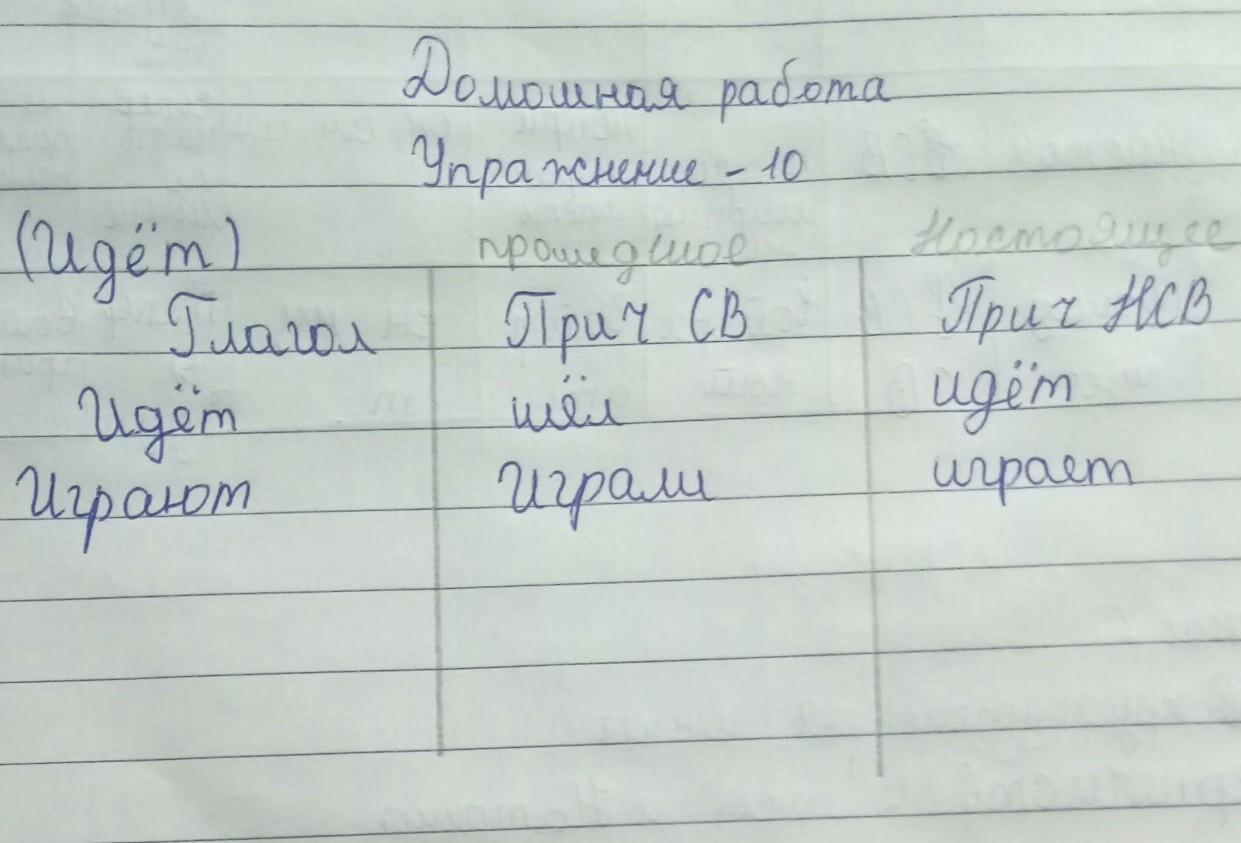 Домошная работа
Упражнение - 10
(Идёт) прошедшое Настоящее
Глагол Прич СВ Прич НСВ
Идёт шёл идёт
Играют Играли играет